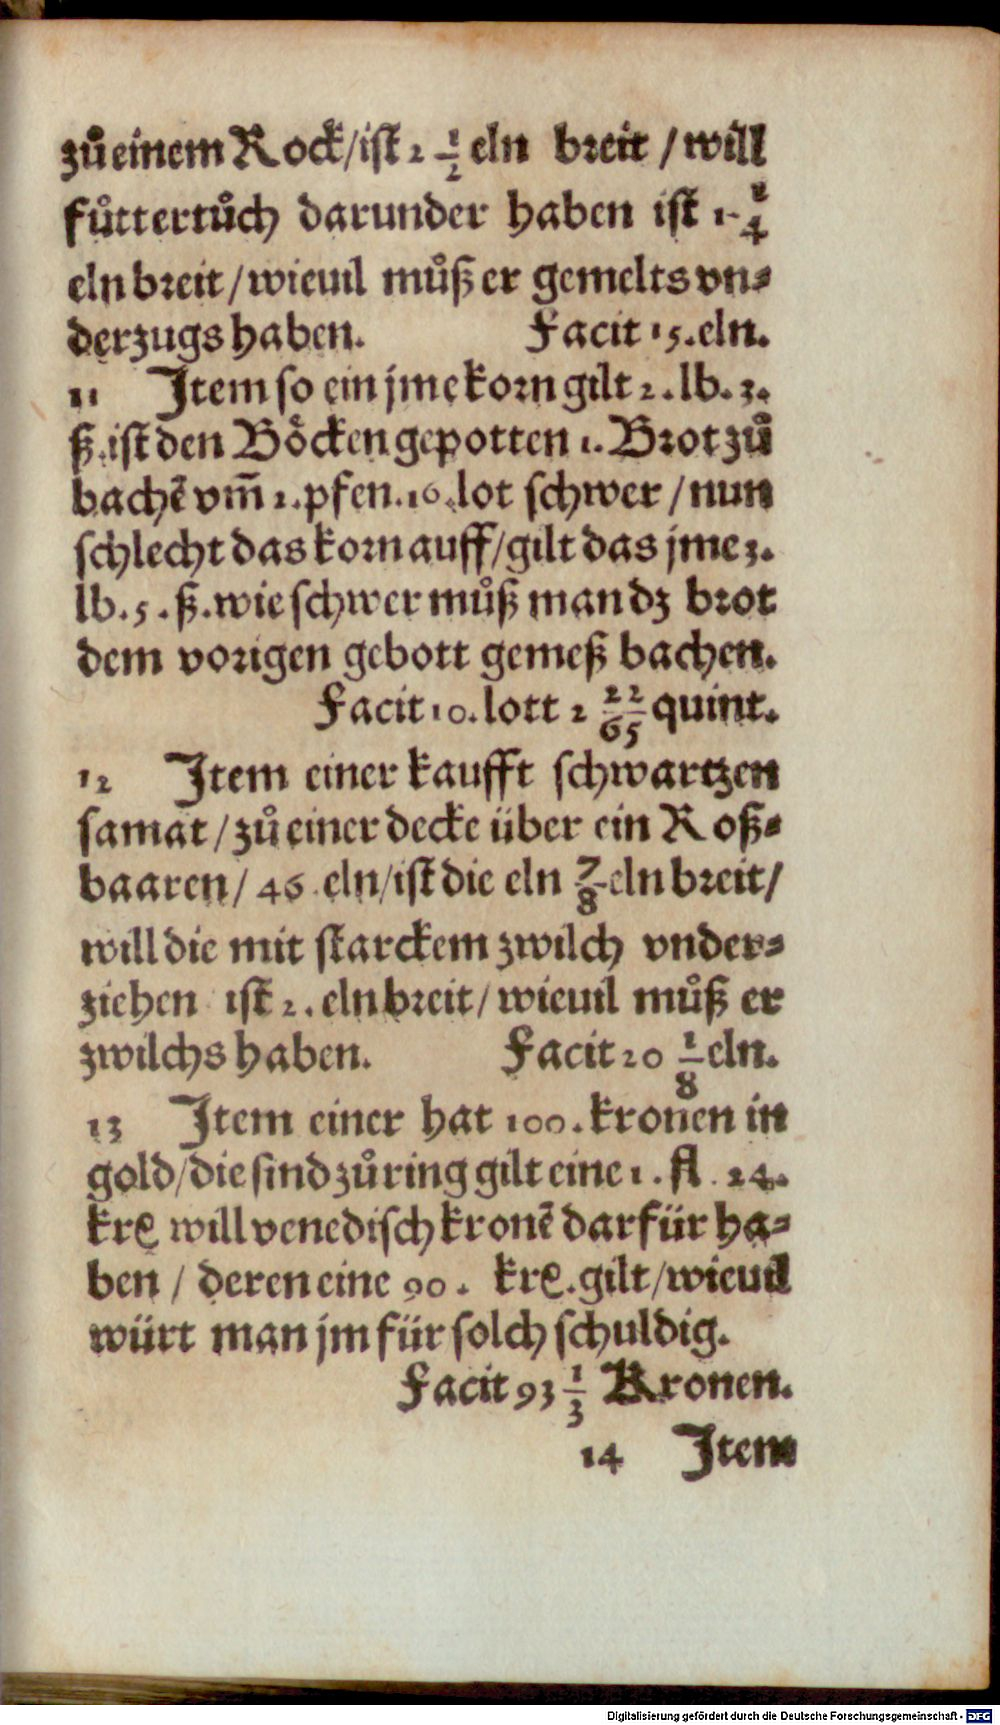 zů einem Rock/ist 2 1/2 eln breit / will
fůttertůch darunder haben ist 1 1/4
eln breit / wieuil můß er gemelts vn⸗
derzugs haben. Facit 15. eln.
11 Item so ein jme korn gilt 2. lb. 3.
ß. ist den Böcken gepotten 1. Brot zů
bachē vm̄ 1. pfen. 16. lot schwer / nun
schlecht das korn auff/gilt das jme 3.
lb. 5. ß. wie schwer můß man dz brot
dem vorigen gebott gemeß bachen.
Facit 10. lott 2 22/65 quint.
12 Item einer kaufft schwartzen
samat / zů einer decke über ein Roß⸗
baaren / 46 eln/ist die eln 7/8 eln breit/
will die mit starckem zwilch vnder⸗
ziehen ist 2. eln breit / wieuil můß er
zwilchs haben. Facit 20 1/8 eln.
13 Item einer hat 100. kronen in
gold/die sind zů ring gilt eine 1. fl. 24.
krꝭ will venedisch kronē dar für ha⸗
ben / deren eine 90. krꝭ. gilt/wieuil
würt man jm für solch schuldig.
Facit 93 1/3 Kronen.
14 Item
Digitalisierung gefördert durch die Deutsche Forschungsgemeinschaft - DFG